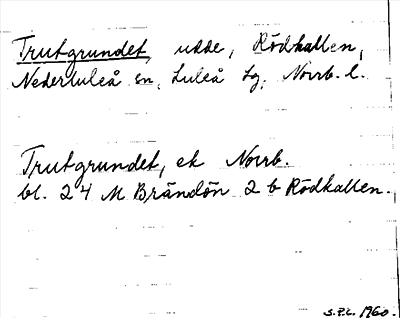 Trutgrundet, udde, Rödkallen,
Nederluleå sn, Luleå tg, Norrb. l.
Trutgrundet, ek Norrb.
bl. 24 M Brändön 2 b Rödkallen.
S.F.L. 1960.